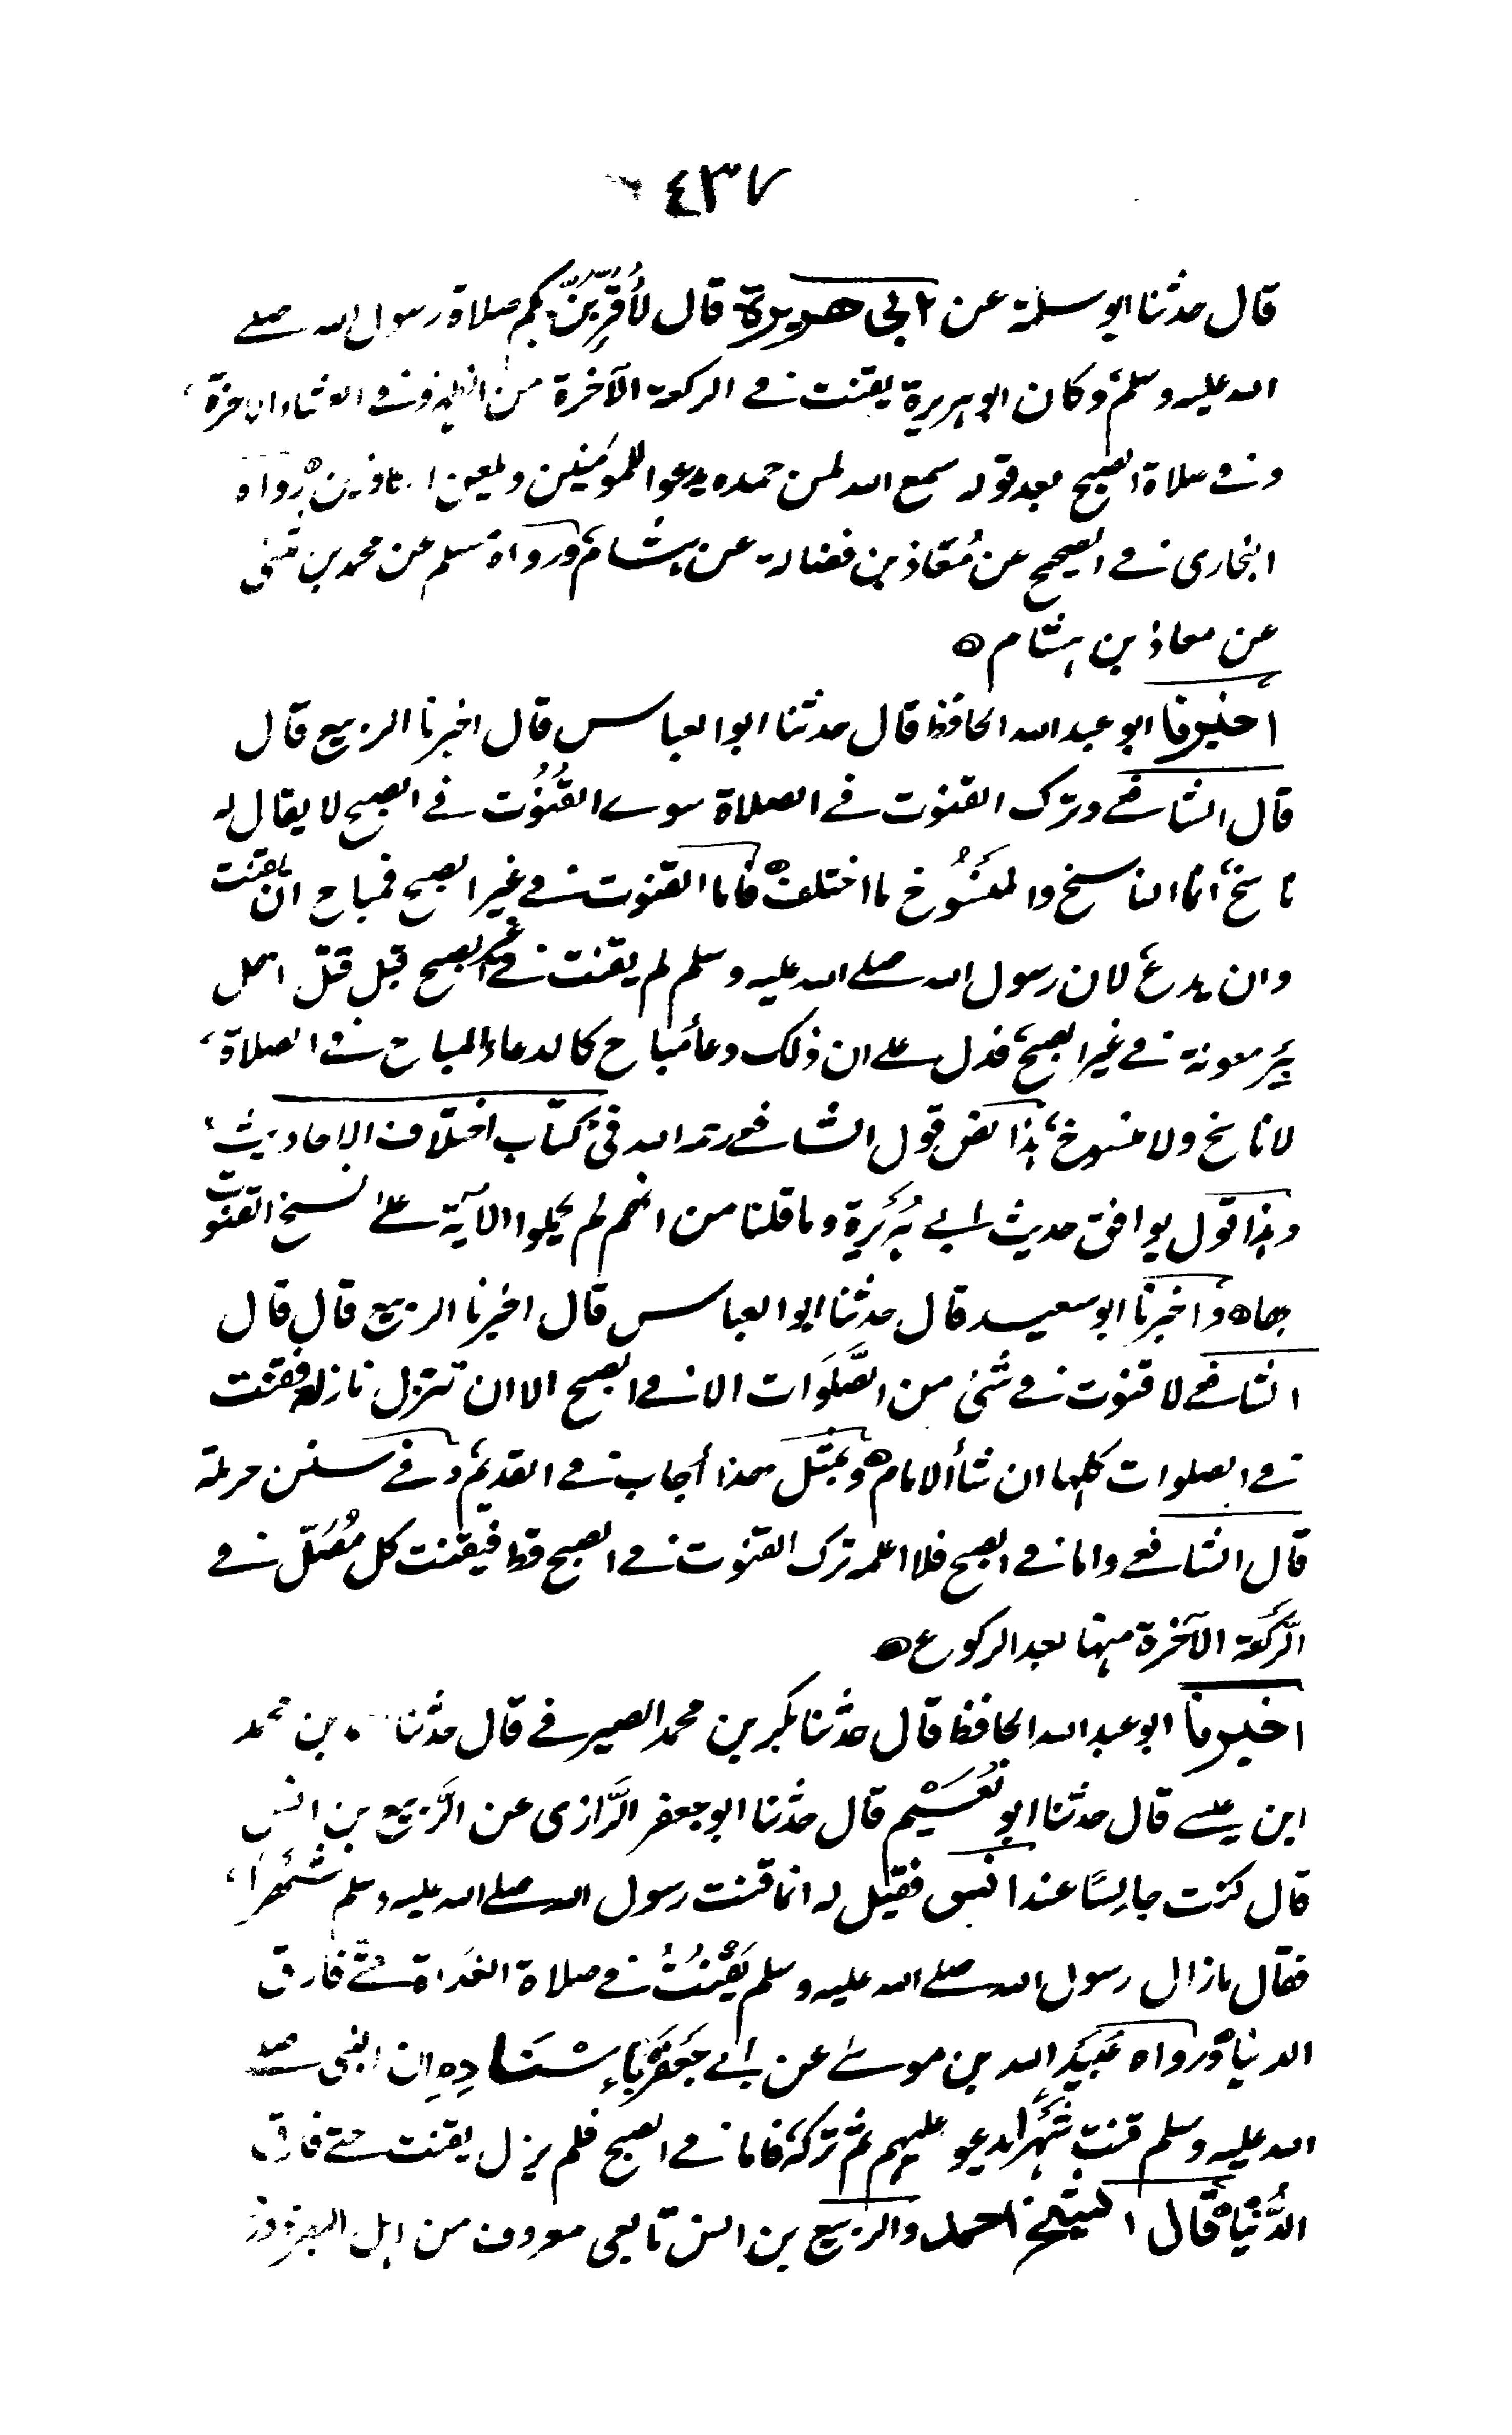 ٤٣٧
قال حدثنا ابو سلمة عن ابي هريرة قال لأُقَرِّبَنَّ بكم صلاة رسول الله صلى
الله عليه وسلم وكان ابو هريرة يقنت في الركعة الآخرة من الظهر وفي العشاء الاخرة،
وفي صلاة الصبح بعد قوله سمع الله لمن حمده يدعوا للمؤمنين ويلعن الكافرين ه رواه
البخارى في الصحيح عن مُعَاذ بن فضالة عن هشام، ورواه مسلم عن محمد بن مثنى
عن معاذ بن هشام ه
اخبرنا ابو عبد الله الحافظ قال حدثنا ابو العباس قال اخبرنا الربيع قال
قال الشافعي وترك القنوت في الصلاة سوى القُنُوت في الصبح لا يقال له
ناسخ، انما الناسخ والمَنسُوخ ما اختلف ه فاما القنوت في غير الصبح فمباح ان يقنت
وان يدع، لان رسول الله صلى الله عليه وسلم لم يقنت في غير الصبح قبل قتل اهل
بِئر معونة في غير الصبح، فدل على ان ذلك دعأ مُباح كالدعاء المباح في الصلاة،
لا ناسخ ولا منسوخ، هذا نص قول الشافعي رحمه الله في كتاب اختلاف الاحاديث،
وهذا قول يوافق حديث ابي هُرَيرة وما قلنا من انهم لم يحملوا الآية على نسخ القنوت
بها ه واخبرنا ابو سعيد قال حدثنا ابو العباس قال اخبرنا الربيع قال قال
الشافعي لا قنوت في شئ من الصَّلَوَات الا في الصبح الا ان تنزل نازلة فيقنت
في الصلوات كلها ان شأ الامام ه وبمثل هذا أجاب في القديم، وفي سنن حرملة
قال الشافعي واما في الصبح فلا اعلمه ترك القنوت في الصبح قط فيقنت كل مُصَلّ في
الرَّكعة الآخرة منها بعد الركوع ه
اخبرنا ابو عبد الله الحافظ قال حدثنا بكر بن محمد الصيرفي قال حدثنا بن محمد
ابن عيسى قال حدثنا ابو نُعَيْم قال حدثنا ابو جعفر الرَّازى عن الرَّبيع بن انس
قال كنت جالسًا عند انس فقيل له انما قنت رسول الله صلى الله عليه وسلم شَهْرًا،
فقال ما زال رسول الله صلى الله عليه وسلم يَقْنُتُ في صلاة الغَداة حتى فارق
الدنيا ه ورواه عُبَيد الله بن موسى عن ابي جَعْفَر بَإِسْنَادِهِ ان النبى صلى
الله عليه وسلم قنت شَهْرًا يدعو عليهم ثم تركه، فاما في الصبح فلم يزل يقنت حتى فارق
الدُّنْيَا ه قال الشيخ احمد والربيع بن انس تابعى معروف من اهل البصرة